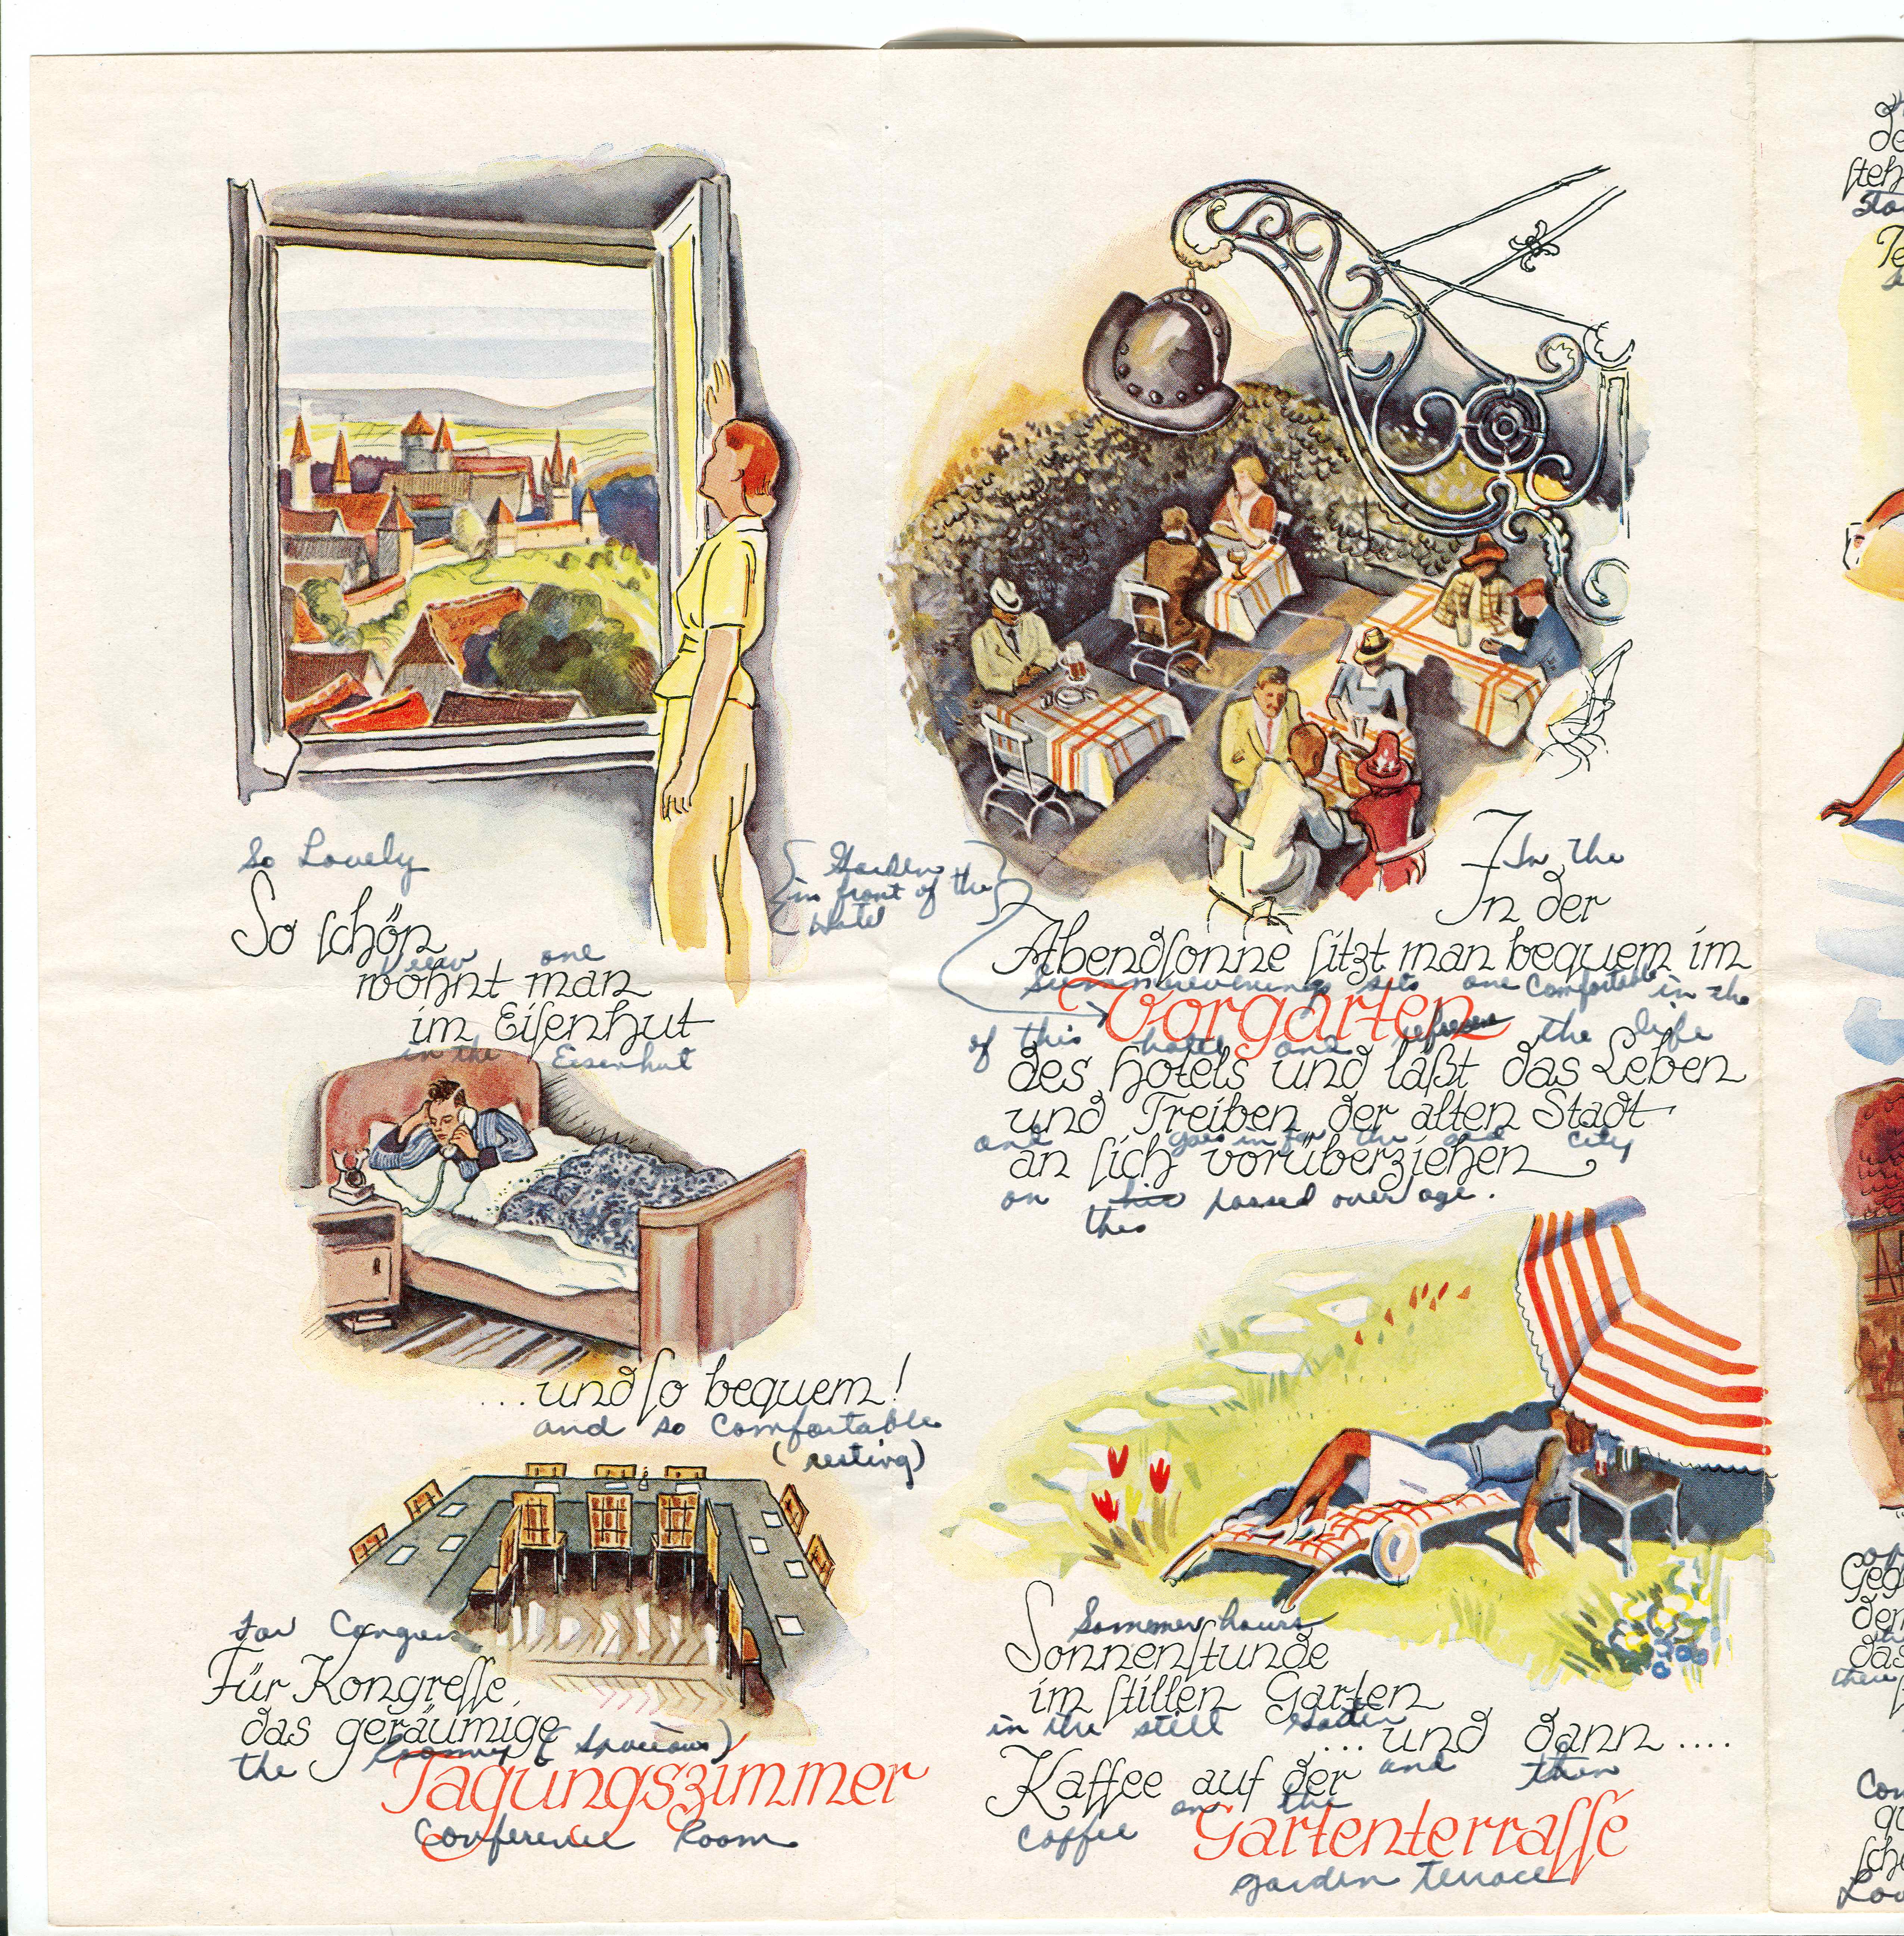 So Lovely
So schön
View one
wohnt man
im Eisenhut
in the Eisenhut
...und so bequem!
and so Comfortable
(resting)
for Congress
Für Kongresse
das geräumige
the roomy (spacious)
Tagungszimmer
Conference Room
{Garden
in front of the}
Hotel
In the
In der
Abendsonne sitzt man bequem im
Summerevenings sits one Comfortable in the
Vorgarten
of this hotel and the life
des Hotels und läßt das Leben
und Treiben der alten Stadt
and goes in for the old city
an sich vorüberziehen
on his passed over age.
this
Sommer hours
Sonnenstunde
im stillen Garten
in the still Garten
...und dann....
and then
Kaffee auf der
coffee on the
Gartenterrasse
garden terrace